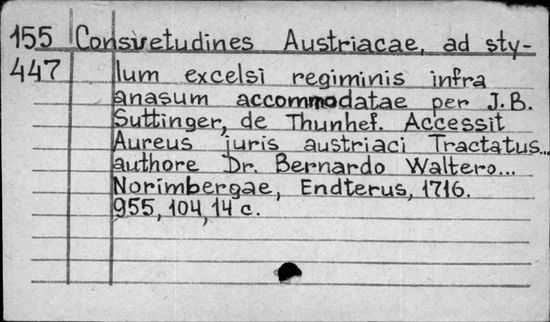 155 Consvetudines Austriacae, ad sty-
447 lum excelsi regiminis infra
anasum accommodatae per J.B.
Suttinger, de Thunhef. Accessit
Aureus juris austriaci Tractatus...
authore Dr. Bernardo Waltero...
Norimbergae, Endterus, 1716.
955, 104, 14 c.